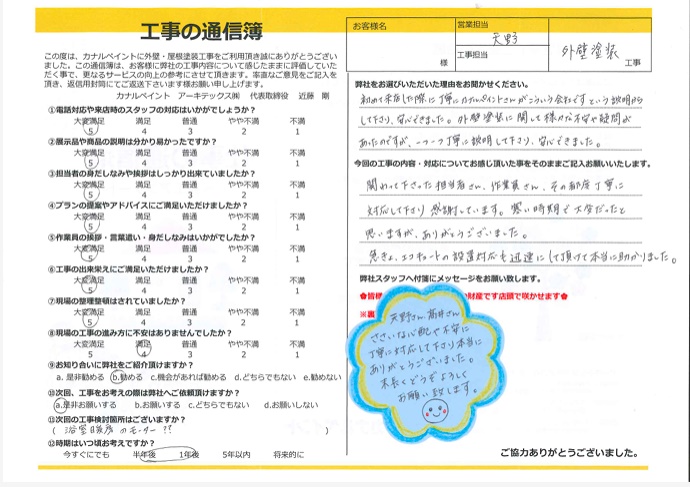 工事の通信簿
この度は、カナルペイントに外壁・屋根塗装工事をご利用頂き誠にありがとうござい
ました。この通信簿は、お客様に弊社の工事内容について感じたままに評価していた
だく事で、更なるサービスの向上の参考にさせて頂きます。率直なご意見をご記入を
頂き、返信用封筒にてご返送下さいます様お願い申し上げます。
カナルペイント アーキテックス㈱ 代表取締役 近藤 剛
①電話対応や来店時のスタッフの対応はいかがでしょうか?
大変満足 満足 普通 やや不満 不満
5 4 3 2 1
②展示品や商品の説明は分かり易かったですか?
大変満足 満足 普通 やや不満 不満
5 4 3 2 1
③担当者の身だしなみや挨拶はしっかり出来ていましたか?
大変満足 満足 普通 やや不満 不満
5 4 3 2 1
④プランの提案やアドバイスにご満足いただけましたか?
大変満足 満足 普通 やや不満 不満
5 4 3 2 1
⑤作業員の挨拶・言葉遣い・身だしなみはいかがでしたか?
大変満足 満足 普通 やや不満 不満
5 4 3 2 1
⑥工事の出来栄えにご満足いただけましたか?
大変満足 満足 普通 やや不満 不満
5 4 3 2 1
⑦現場の整理整頓はされていましたか?
大変満足 満足 普通 やや不満 不満
5 4 3 2 1
⑧現場の工事の進み方に不安はありませんでしたか?
大変満足 満足 普通 やや不満 不満
5 4 3 2 1
⑨お知り合いに弊社をご紹介頂けますか?
a. 是非勧める b.勧める c.機会があれば勧める d.どちらでもない e.勧めない
⑩次回、工事をお考えの際は弊社へご依頼頂けますか?
a.是非お願いする b.お願いする c.どちらでもない d.お願いしない
⑪次回の工事検討箇所はございますか?
( 浴室暖房のモーター?? )
⑫時期はいつ頃お考えですか?
今すぐにでも 半年後 1年後 5年以内 将来的に
お客様名
様
営業担当
天野
工事担当
外壁塗装
工事
弊社をお選びいただいた理由をお聞かせください。
初めて来店した際に丁寧にカナルペイントさんがこういう会社ですという説明から
して下さり、安心できました。外壁塗装に関して様々な不安や疑問が
あったのですが、一つ一つ丁寧に説明して下さり、安心できました。
今回の工事の内容・対応についてお感じ頂いた事をそのままご記入お願いいたします。
関わって下さった担当者さん、作業員さん、その都度丁寧に
対応して下さり感謝しています。寒い時期で大変だったと
思いますが、ありがとうございました。
急きょ、エコキュートの設置対応も迅速にして頂けて本当に助かりました。
弊社スタッフへ付箋にメッセージをお願い致します。
✿皆様
財産です店頭で咲かせます✿
※裏
天野さん 高井さん
ささいな心配や不安に
丁寧に対応して下さり本当に
ありがとうございました。
末長くどうぞよろしく
お願い致します。
ご協力ありがとうございました。